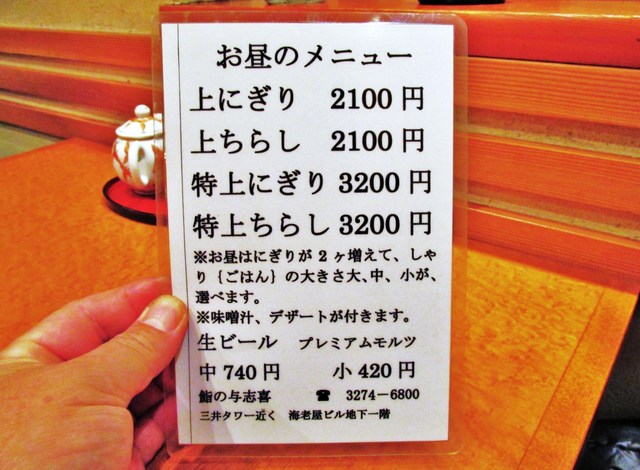 お昼のメニュー
上にぎり 2100 円
上ちらし 2100 円
特上にぎり 3200 円
特上ちらし 3200 円
※お昼はにぎりが 2 ヶ増えて、しゃ
り{ごはん}の大きさ大、中、小が、
選べます。
※味噌汁、デザートが付きます。
生ビール プレミアムモルツ
中 740 円 小 420 円
鮨の与志喜 ☎ 3274－6800
三井タワー近く 海老屋ビル地下一階